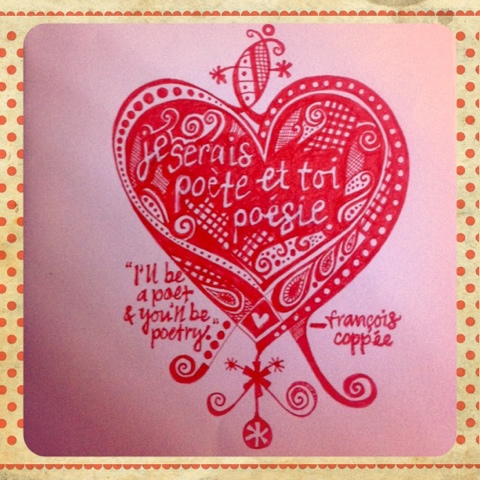 je serais
poète et toi
poésie
"I'll be
a poet
& you'll be
poetry."
—françois
coppée